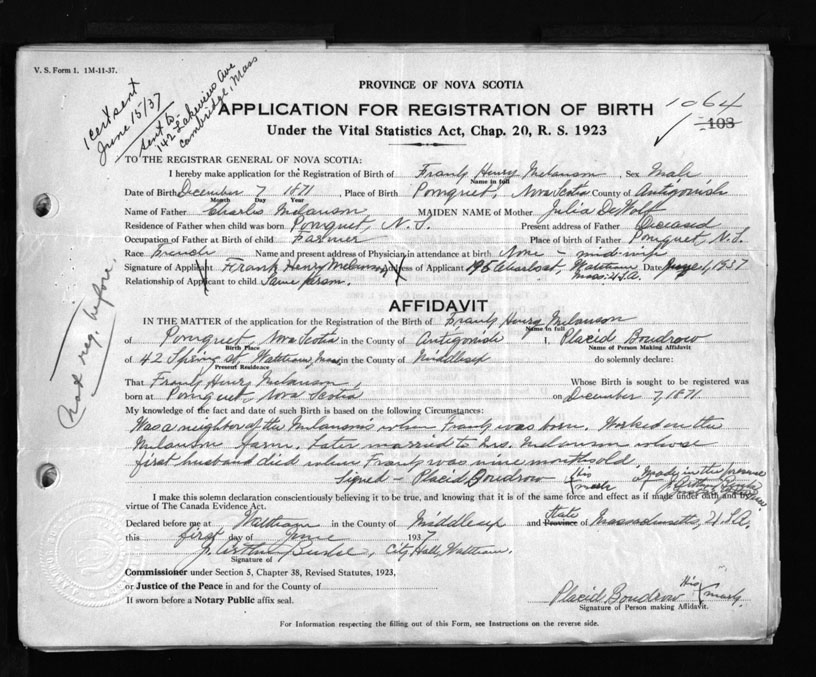 V. S. Form 1. 1M-11-37.
1 cert sent
June 15/37
sent to
142 Lakeview Ave
Cambridge, Mass
PROVINCE OF NOVA SCOTIA
APPLICATION FOR REGISTRATION OF BIRTH
1064
103
Under the Vital Statistics Act, Chap. 20, R. S. 1923
TO THE REGISTRAR GENERAL OF NOVA SCOTIA:
I hereby make application for the Registration of Birth of Frank Henry Melanson, Sex Male
Name in full
Date of Birth December 7 1871, Place of Birth Pomquet, Nova Scotia County of Antigonish
Month Day Year
Name of Father Charles Melanson MAIDEN NAME of Mother Julia DeWolf
Residence of Father when child was born Pomquet, N.S. Present address of Father Diceased
Occupation of Father at Birth of child Farmer Place of birth of Father Pomquet, N.S.
Race French Name and present address of Physician in attendance at birth None - mid-wife
Signature of Applicant Frank Henry Melanson Address of Applicant 195 Waltham Mass. U.S.A. Date 1, 1937
Relationship of Applicant to child Same person.
Not reg. before.
AFFIDAVIT
IN THE MATTER of the application for the Registration of the Birth of Frank Henry Melanson
Name in full
of Pomquet, Nova Scotia in the County of Antigonish I, Placid Boudrow
Birth Place Name of Person Making Affidavit
of 42 Spring St Waltham, Mass in the County of Middlesex do solemnly declare:
Present Residence
That Frank Henry Melanson, Whose Birth is sought to be registered was
born at Pomquet, Nova Scotia on December 7, 1871.
My knowledge of the fact and date of such Birth is based on the following Circumstances:
Was a neighbor of the Melansons when Frank was born. Worked on the
Melanson farm. Later married to Mrs. Melanson whose
first husband died when Frank was nine months old.
Signed - Placid Boudrow his mark Made in the presence
of
I make this solemn declaration conscientiously believing it to be true, and knowing that it is of the same force and effect as if made under oath and by
virtue of The Canada Evidence Act.
Declared before me at Waltham in the County of Middlesex and Province State of Massachusetts, U.S.A.
this first day of June 1937
J. Arthur City Hall, Waltham.
Signature of
Commissioner under Section 5, Chapter 38, Revised Statutes, 1923,
or Justice of the Peace in and for the County of
If sworn before a Notary Public affix seal.
Placid Boudrow his mark
Signature of Person making Affidavit.
For Information respecting the filling out of this Form, see Instructions on the reverse side.